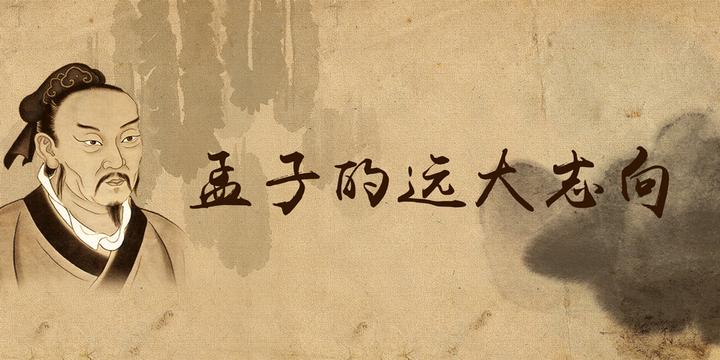 孟子的远大志向